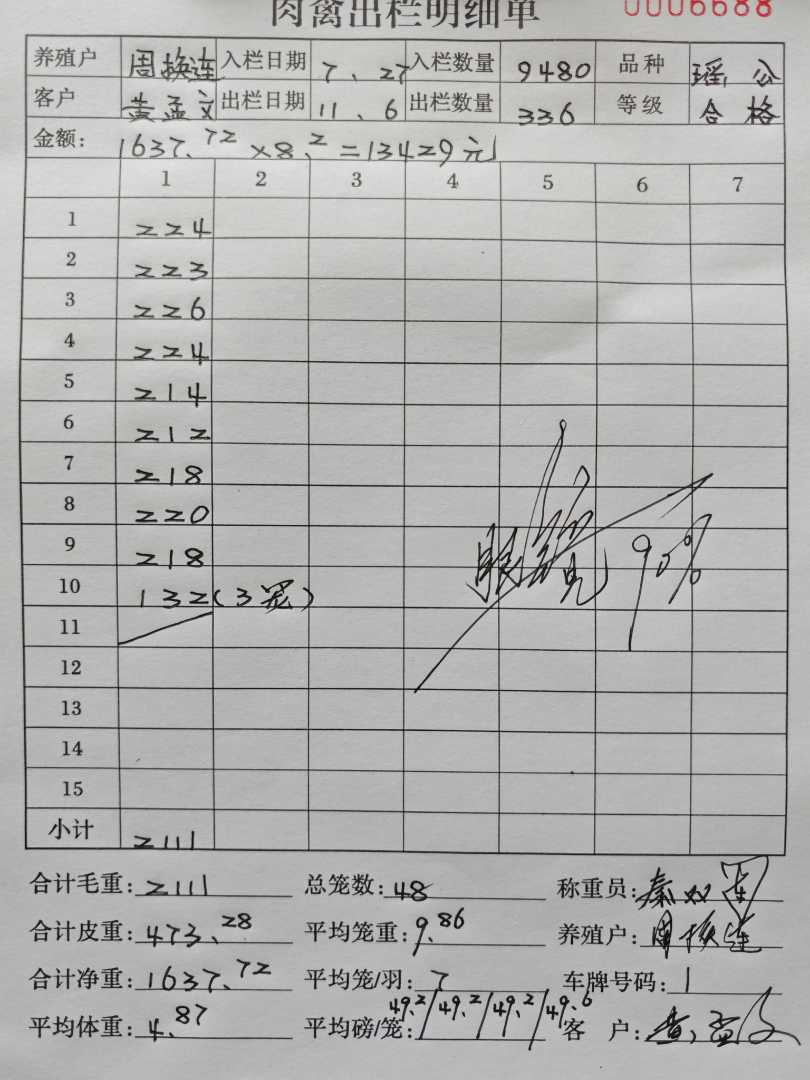 肉禽出栏明细单 0006688
养殖户 周换连 入栏日期 7、27 入栏数量 9480 品种 瑶公
客户 黄孟文 出栏日期 11、6 出栏数量 336 等级 合格
金额: 1637.72×8.2=13429元
1 2 3 4 5 6 7
1 224
2 223
3 226
4 224
5 214
6 212
7 218
8 220
9 218
10 132(3笼)
11
12
13
14
15
90%
小计 2111
合计毛重: 2111 总笼数: 48 称重员: 秦双军
合计皮重: 473.28 平均笼重: 9.86 养殖户: 周换连
合计净重: 1637.72 平均笼/羽: 7 车牌号码: 1
平均体重: 4.87 平均磅/笼: 49.2/49.2/49.2/49.6 客 户: 黄孟文